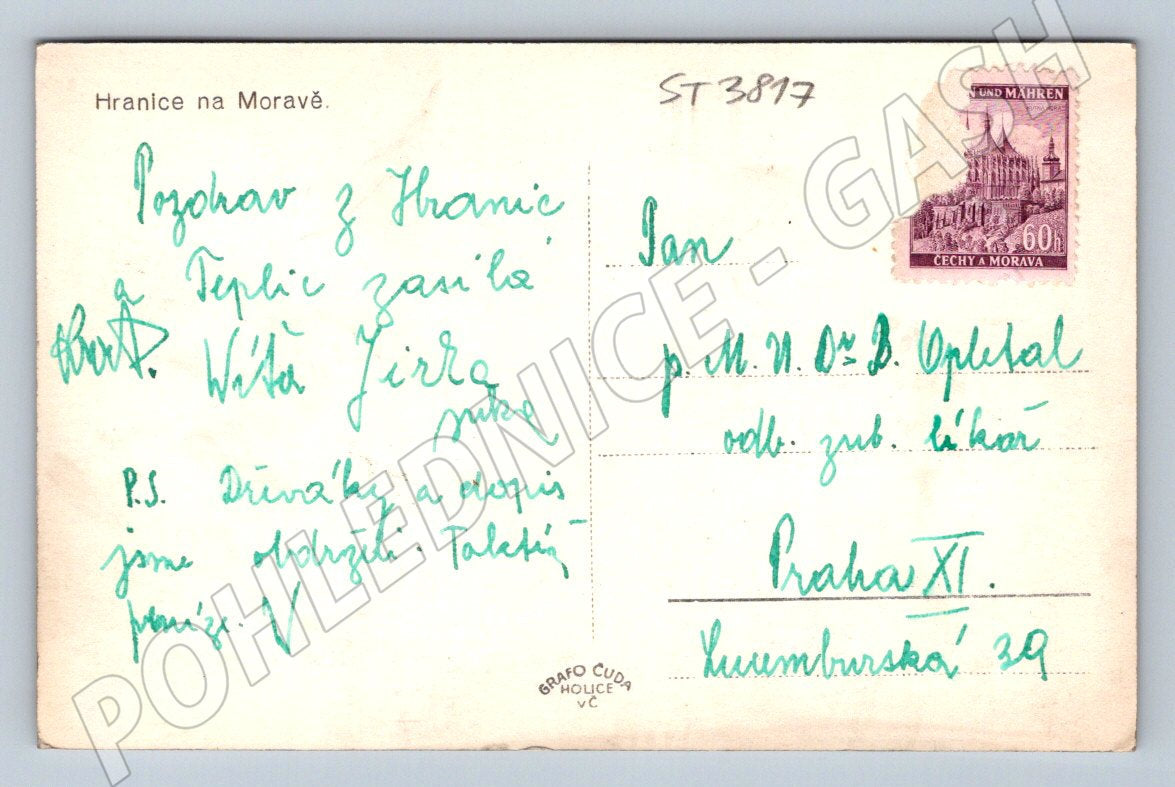 Hranice na Moravě.
ST 3817
Pozdrav z Hranic
a Teplic zasílá
Víťa Jirka
P.S. Dřeváky a dopis
jsme obdrželi. Taktéž
peníze. V
UND MÄHREN
60h
ČECHY A MORAVA
Pan
p. M. U. Dr B. Opletal
odb. zub. lékař
Praha XI.
Lucemburská 39
GRAFO ČUDA
HOLICE
VČ
POHLEDNICE - GASH